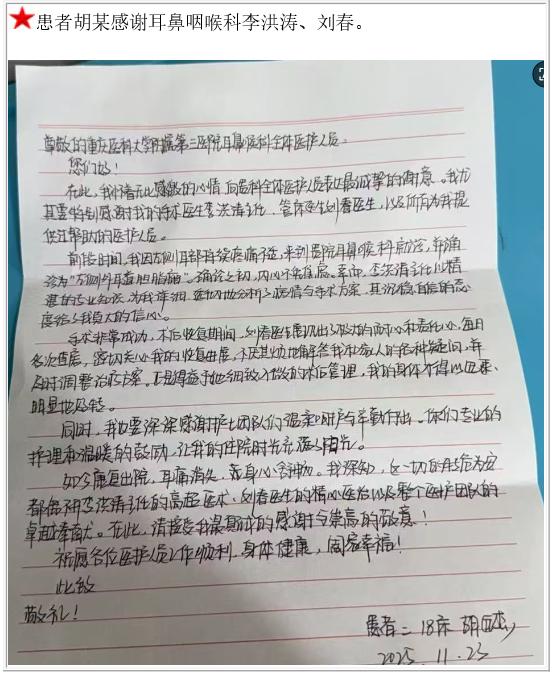 患者胡某感谢耳鼻咽喉科李洪涛、刘春。
尊敬的重庆医科大学附属第三医院耳鼻喉科全体医护人员:
您们好!
在此,我怀着无比感激的心情向贵科全体医护人员表达最诚挚的谢意。我尤
其要特别感谢我的手术医生李洪涛主任、管床医生刘春医生,以及所有为我提
供过帮助的医护人员。
前段时间,我因左侧耳部持续疼痛不适,来到贵院耳鼻喉科就诊,并确
诊为"左侧外耳道胆脂瘤"。确诊之初,内心不免焦虑。幸而,李洪涛主任以精
湛的专业知识,为我详细、透彻地分析了病情与手术方案,其沉稳自信的态
度给了我莫大的信心。
手术非常成功,术后恢复期间,刘春医生展现出了极大的耐心和责任心,每日
多次查房,密切关心我的恢复进展,不厌其烦地解答我和家人的各种疑问,并
及时调整治疗方案。正是得益于他细致入微的术后管理,我的身体才得以迅速、
明显地好转。
同时,我也要深深感谢护士团队们温柔呵护与辛勤付出。你们专业的
护理和温暖的鼓励,让我的住院时光充满了阳光。
如今康复出院,耳痛消失,身心舒畅。我深知,这一切的转危为安
都得益于李洪涛主任的高超医术、刘春医生的精心医治以及整个医护团队的
卓越奉献。在此,请接受我最真诚的感谢与崇高的敬意!
祝愿各位医护人员工作顺利,身体健康,阖家幸福!
此致
敬礼!
患者:18床 胡
2025.11.23